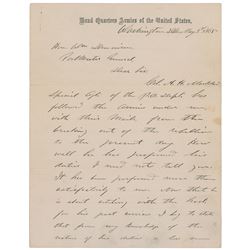 Head Quarters Armies of the United States,
Washington, May 8th 1865
Hon. Wm Dennison
Post Master General
Dear Sir
Col. A. H. Markland
Special Agt. of the P.O. Dept. has
followed the Armies under me
with their Mails from the
breaking out of the rebellion
to the present day. How
well he has performed his
duties I need not tell you.
It has been performed more than
satisfactorily to me. Now that he
is about settling with the Dept.
for his past services I beg to state
that from my knowledge of the
nature of his duties has